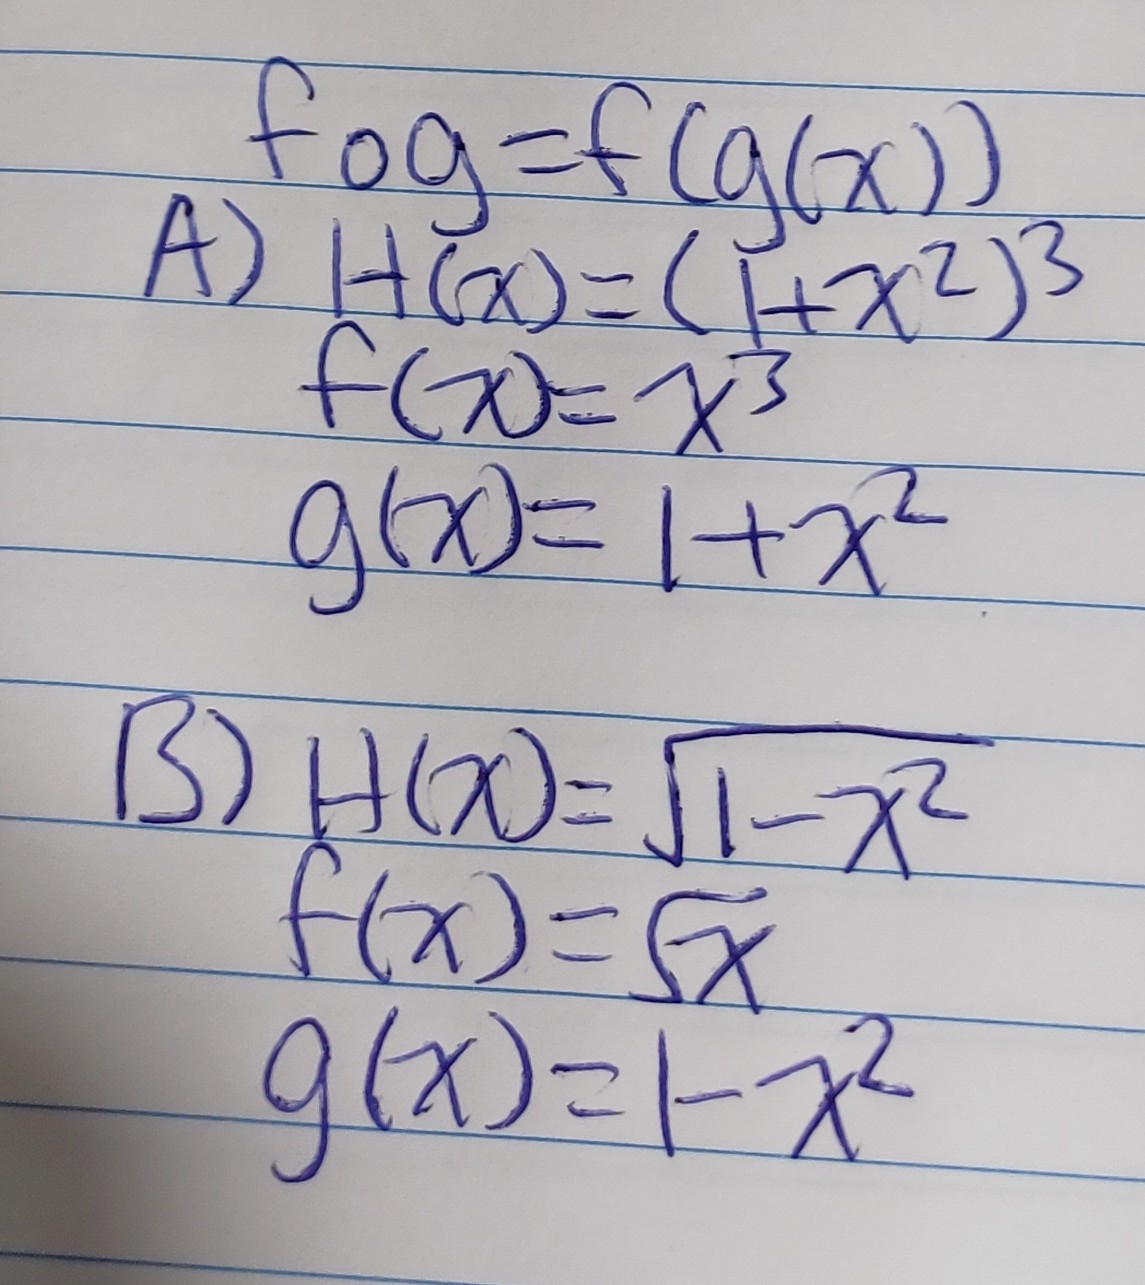 fog=f(g(x))
A) H(x)=(1+x²)³
f(x)=x³
g(x)=1+x²
B) H(x)=√(1-x²)
f(x)=√x
g(x)=1-x²